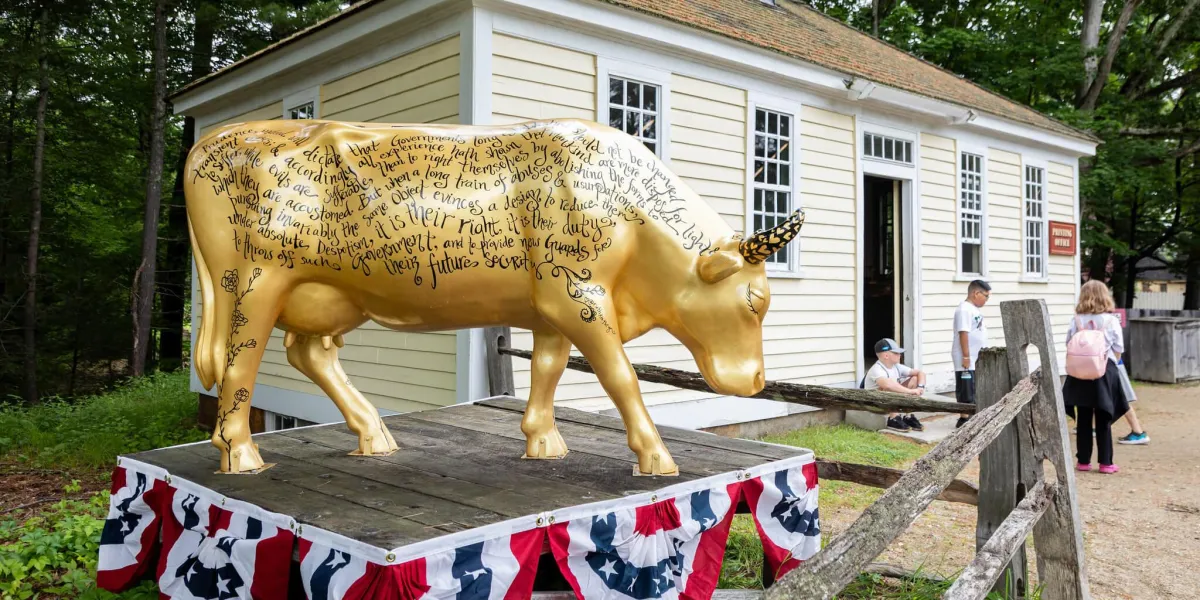 that Governments long
should not be changed
transient
and accordingly
all experience hath shewn,
that mankind are more disposed
while evils are sufferable
them to right themselves by abolishing the forms to
which they are accustomed. But when a long train of abuses & usurpations,
pursuing invariably the same Object evinces a design to reduce them
under absolute Despotism, it is their right, it is their duty,
to throw off such Government, and to provide new Guards for
their future security
PRINTING
OFFICE